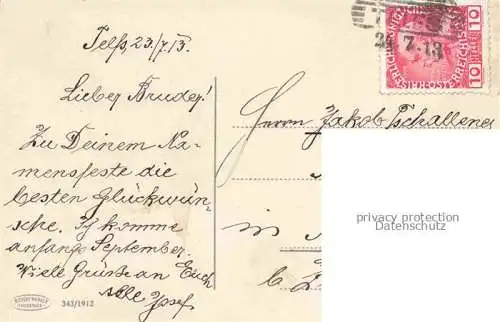 Telfs, 23./7. 13.
Lieber Bruder!
Zu Deinem Na-
mensfeste die
besten Glückwün-
sche. Ich komme
anfangs September.
Viele Grüsse an Euch
alle Josef
Herrn Jakob Tschallener
in
b.
privacy protection
Datenschutz
343/1912
24 7.13
10 HELLER 10